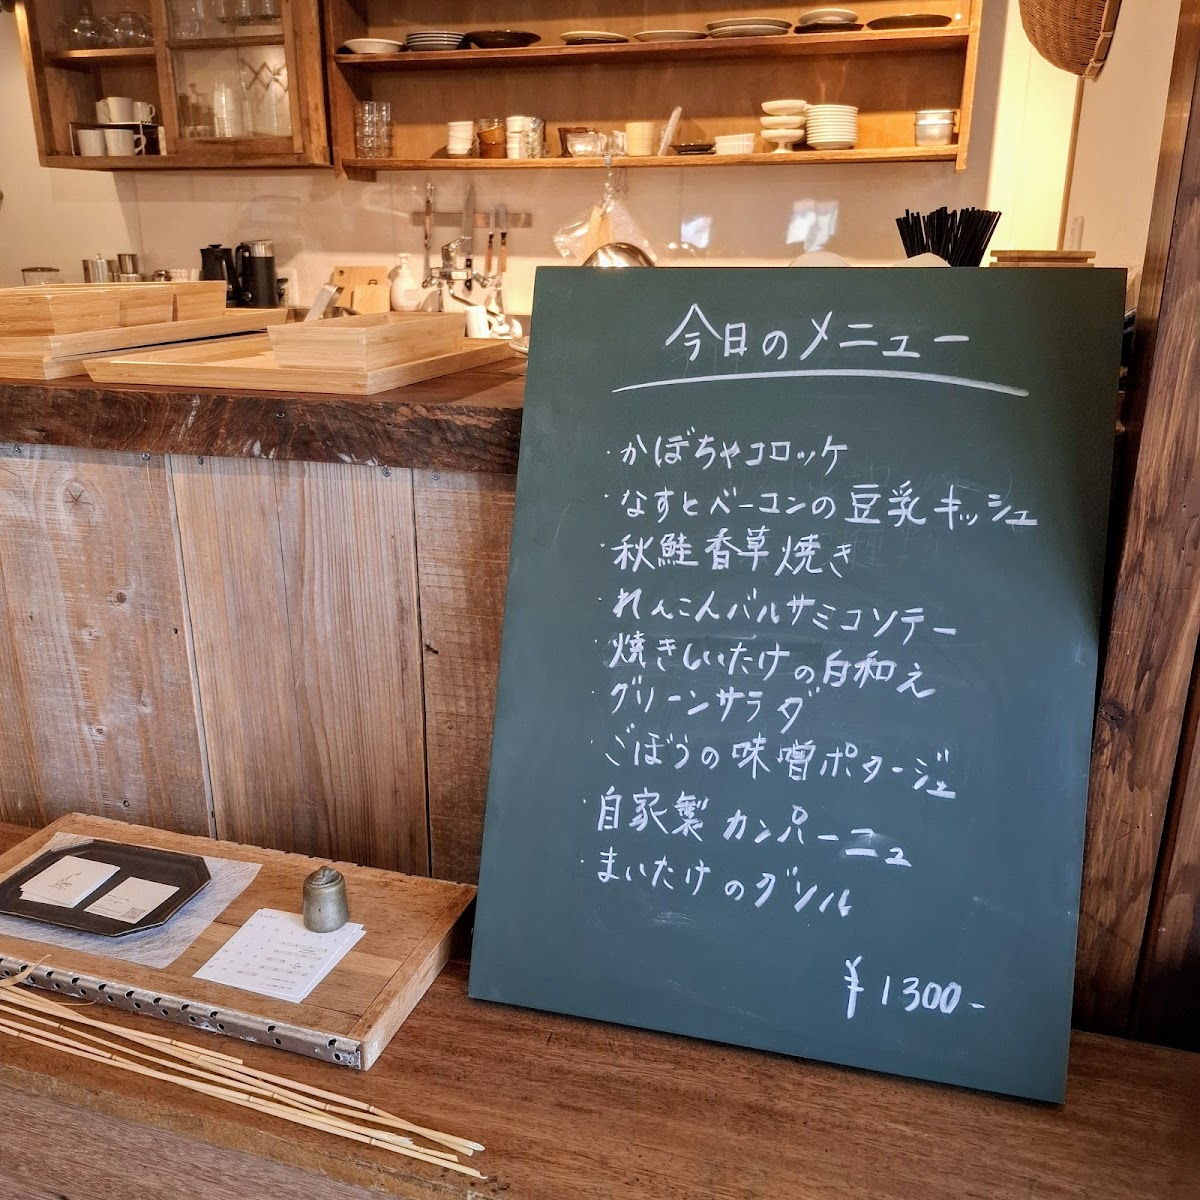 今日のメニュー
・かぼちゃコロッケ
・なすとベーコンの豆乳キッシュ
・秋鮭香草焼き
・れんこんバルサミコソテー
・焼きしいたけの白和え
・グリーンサラダ
・ごぼうの味噌ポタージュ
・自家製カンパーニュ
・まいたけのグリル
¥1300-